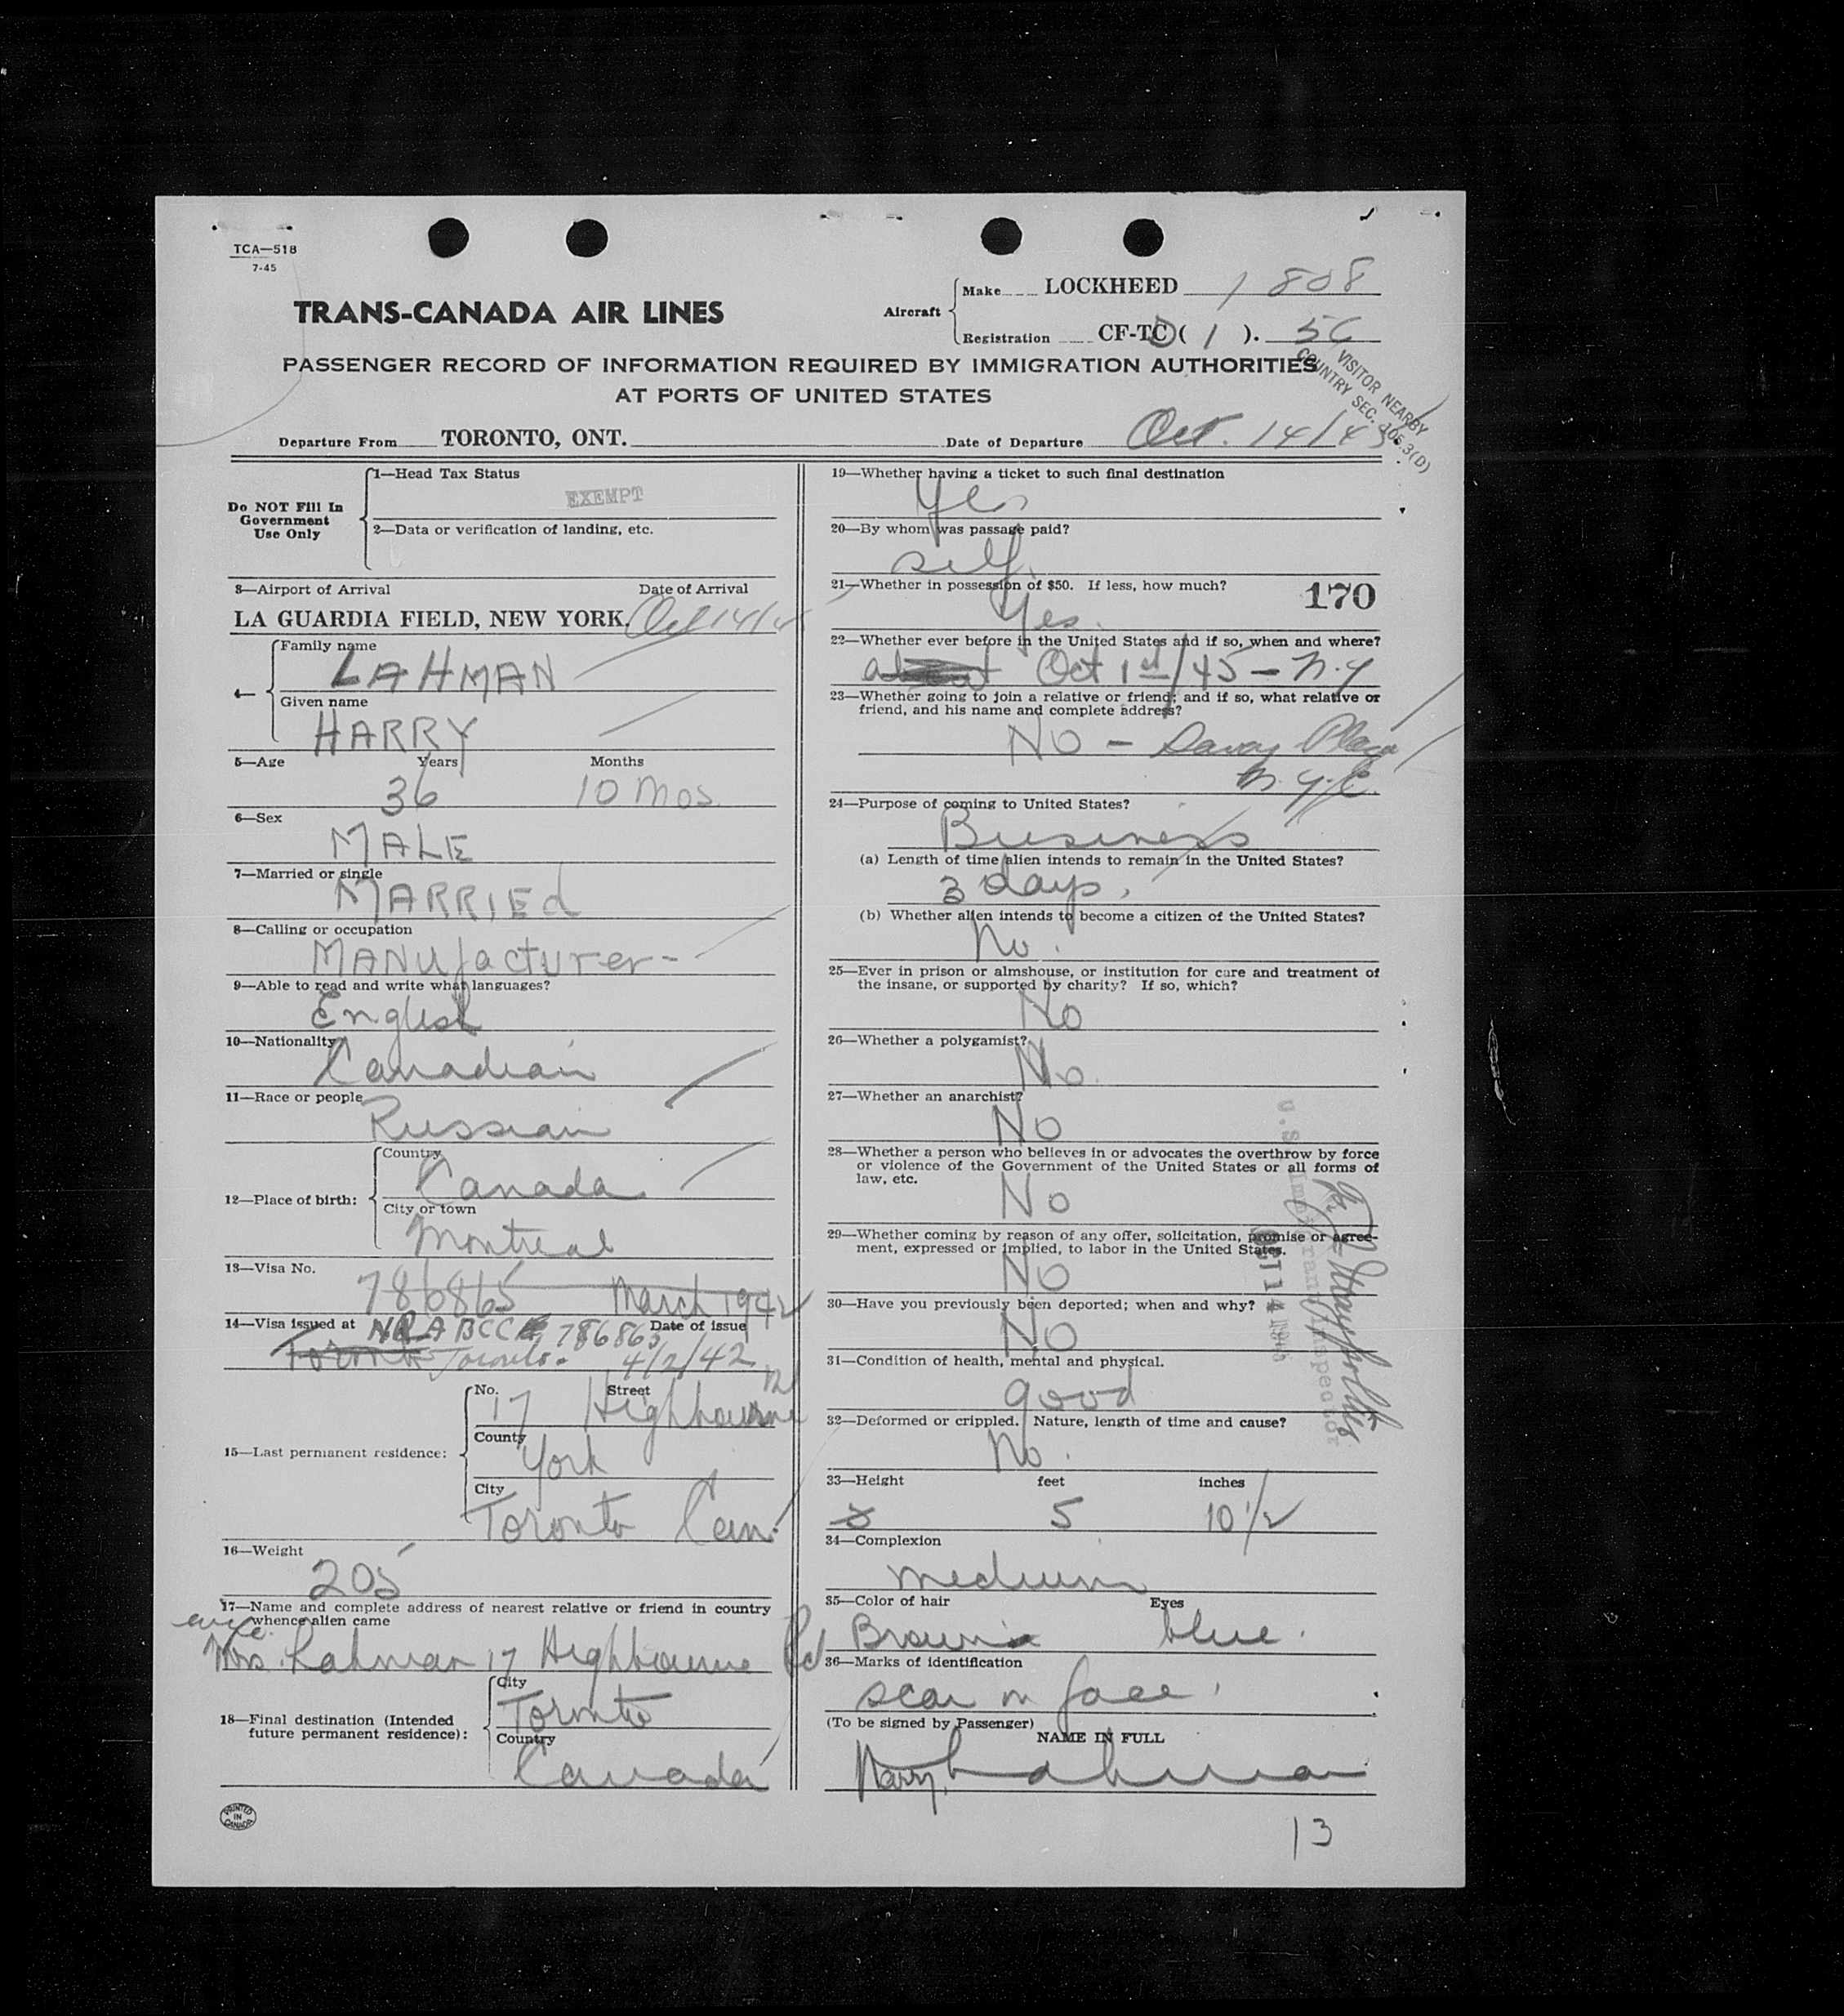 TCA—518
7-45
TRANS-CANADA AIR LINES
Aircraft
Make LOCKHEED 1808
Registration CF-TC ( 1 ). 56
PASSENGER RECORD OF INFORMATION REQUIRED BY IMMIGRATION AUTHORITIES
AT PORTS OF UNITED STATES
VISITOR NEARBY
COUNTRY SEC. 105.3(D)
Departure From TORONTO, ONT. Date of Departure Oct. 14/45
Do NOT Fill In
Government
Use Only
1—Head Tax Status
EXEMPT
2—Data or verification of landing, etc.
3—Airport of Arrival Date of Arrival
LA GUARDIA FIELD, NEW YORK. Oct 14/
4—
Family name
LAHMAN
Given name
HARRY
5—Age Years Months
36 10 Mos.
6—Sex
MALE
7—Married or single
MARRIEd
8—Calling or occupation
MANUfacturer-
9—Able to read and write what languages?
English
10—Nationality
Canadian
11—Race or people
Russian
12—Place of birth:
Country
Canada
City or town
Montreal
13—Visa No.
786865 March 1942
14—Visa issued at Date of issue
NRABCC 786865
Toronto Toronto. 4/2/42
15—Last permanent residence:
No. Street
17 Highbourne
County
York
City
Toronto Can.
16—Weight
205
17—Name and complete address of nearest relative or friend in country
whence alien came
wife
Mrs. Lahman 17 Highbourne Rd
18—Final destination (Intended
future permanent residence):
City
Toronto
Country
Canada
PRINTED
IN
CANADA
19—Whether having a ticket to such final destination
Yes
20—By whom was passage paid?
self.
21—Whether in possession of $50. If less, how much?
170
Yes.
22—Whether ever before in the United States and if so, when and where?
Oct 1st/45 - N.Y
23—Whether going to join a relative or friend; and if so, what relative or
friend, and his name and complete address?
NO - Savoy Plaza
N.Y.C.
24—Purpose of coming to United States?
Business
(a) Length of time alien intends to remain in the United States?
3 days.
(b) Whether alien intends to become a citizen of the United States?
No.
25—Ever in prison or almshouse, or institution for care and treatment of
the insane, or supported by charity? If so, which?
No
26—Whether a polygamist?
No.
27—Whether an anarchist?
No
28—Whether a person who believes in or advocates the overthrow by force
or violence of the Government of the United States or all forms of
law, etc.
No
29—Whether coming by reason of any offer, solicitation, promise or agree-
ment, expressed or implied, to labor in the United States.
No
30—Have you previously been deported; when and why?
NO
U.S. Immigrant Inspector
OCT 14 1945
31—Condition of health, mental and physical.
good
32—Deformed or crippled. Nature, length of time and cause?
No.
33—Height feet inches
5 10 1/2
34—Complexion
medium
35—Color of hair Eyes
Brown blue.
36—Marks of identification
scar on face.
(To be signed by Passenger)
NAME IN FULL
Harry Lahman
13